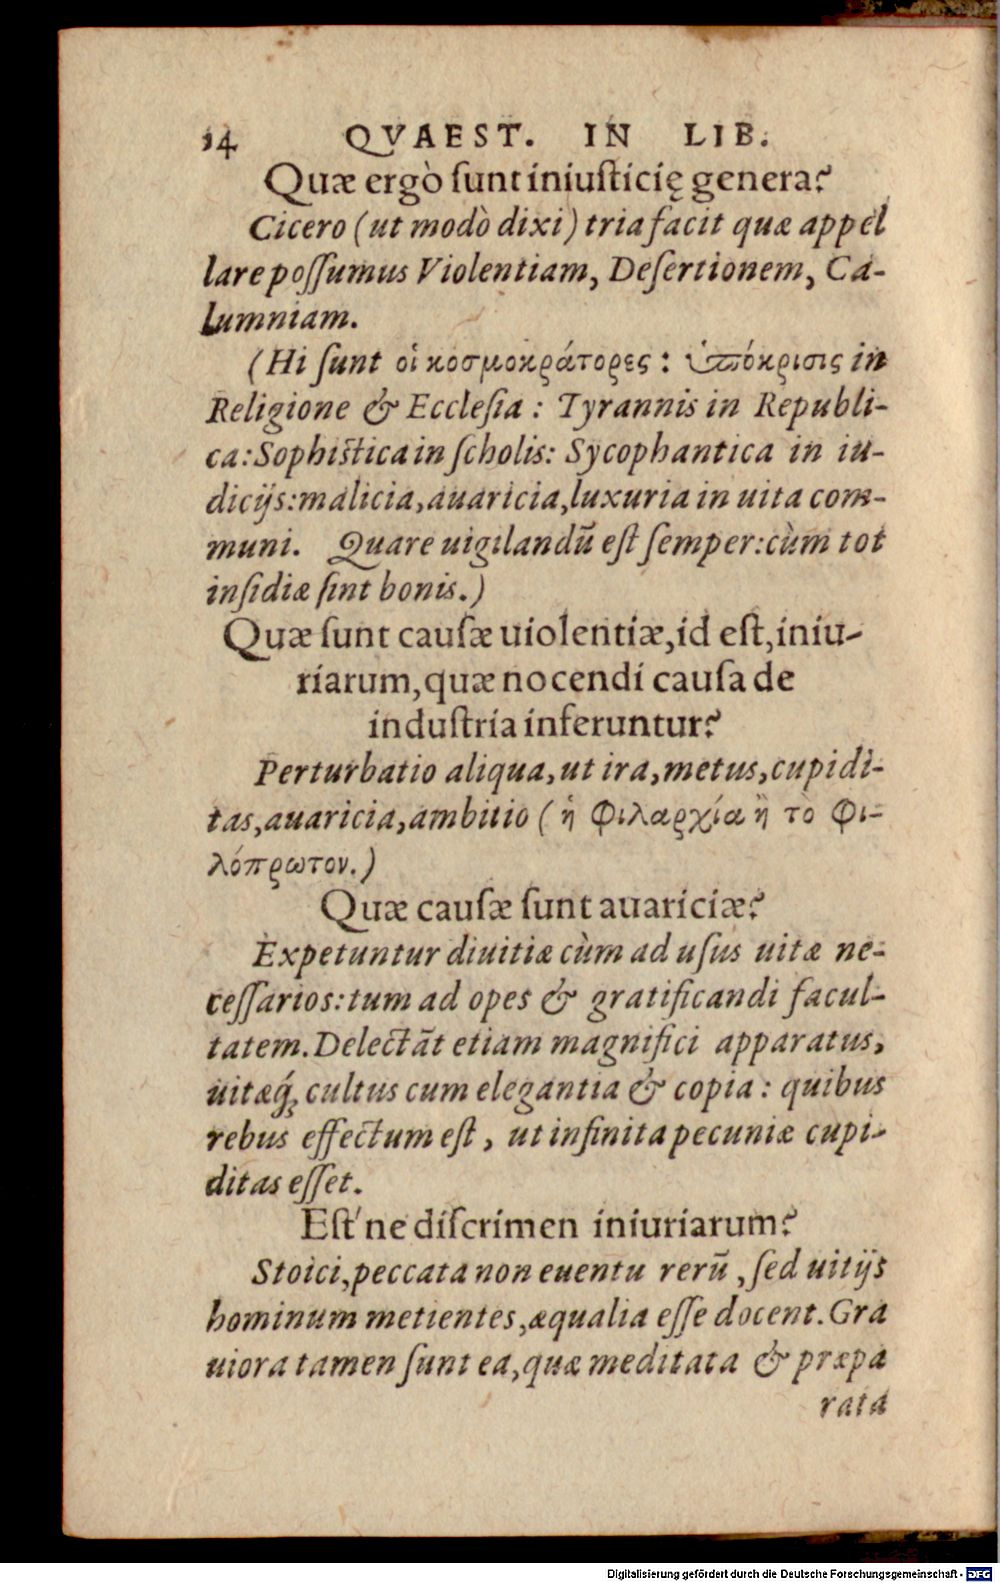 14 QVAEST. IN LIB.
Quæ ergò ſunt iniuſticię genera?
Cicero (ut modò dixi) tria facit quæ appel
lare poſſumus Violentiam, Deſertionem, Ca-
lumniam.
(Hi ſunt οἱ κοσμοκράτορες: ὑπόκρισις in
Religione & Eccleſia: Tyrannis in Republi-
ca: Sophiſtica in ſcholis: Sycophantica in iu-
dicijs: malicia, auaricia, luxuria in uita com-
muni. Quare uigilandũ eſt ſemper: cùm tot
inſidiæ ſint bonis.)
Quæ ſunt cauſæ uiolentiæ, id eſt, iniu-
riarum, quæ nocendi cauſa de
induſtria inferuntur?
Perturbatio aliqua, ut ira, metus, cupidi-
tas, auaricia, ambitio (ἡ φιλαρχία ἢ τὸ φι-
λόπρωτον.)
Quæ cauſæ ſunt auariciæ?
Expetuntur diuitiæ cùm ad uſus uitæ ne-
ceſſarios: tum ad opes & gratificandi facul-
tatem. Delectãt etiam magnifici apparatus,
uitæq́; cultus cum elegantia & copia: quibus
rebus effectum eſt, ut infinita pecuniæ cupi-
ditas eſſet.
Eſt'ne diſcrimen iniuriarum?
Stoici, peccata non euentu rerũ, ſed uitijs
hominum metientes, æqualia eſſe docent. Gra
uiora tamen ſunt ea, quæ meditata & præpa
rata
Digitalisierung gefördert durch die Deutsche Forschungsgemeinschaft - DFG